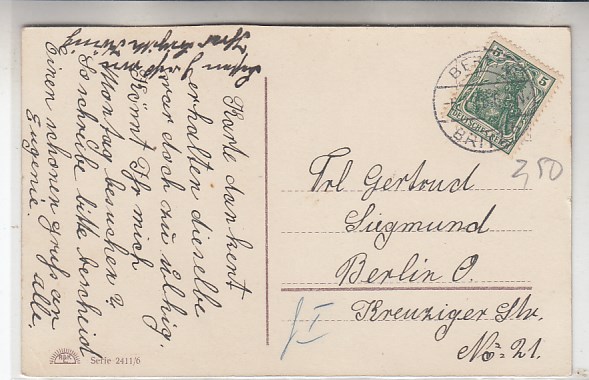 Karte dankent
erhalten dieselbe
war doch zu ulkig.
Könnt Ihr mich
Montag besuchen?
So schreibe bitte bescheid
Einen schönen gruß an
alle,
Eugenie.
5 5
DEUTSCHES REICH
BE
BRI
3,50
Frl Gertrud
Siegmund
Berlin O.
Kreuziger Str.
No 21.
I
Serie 2411/6